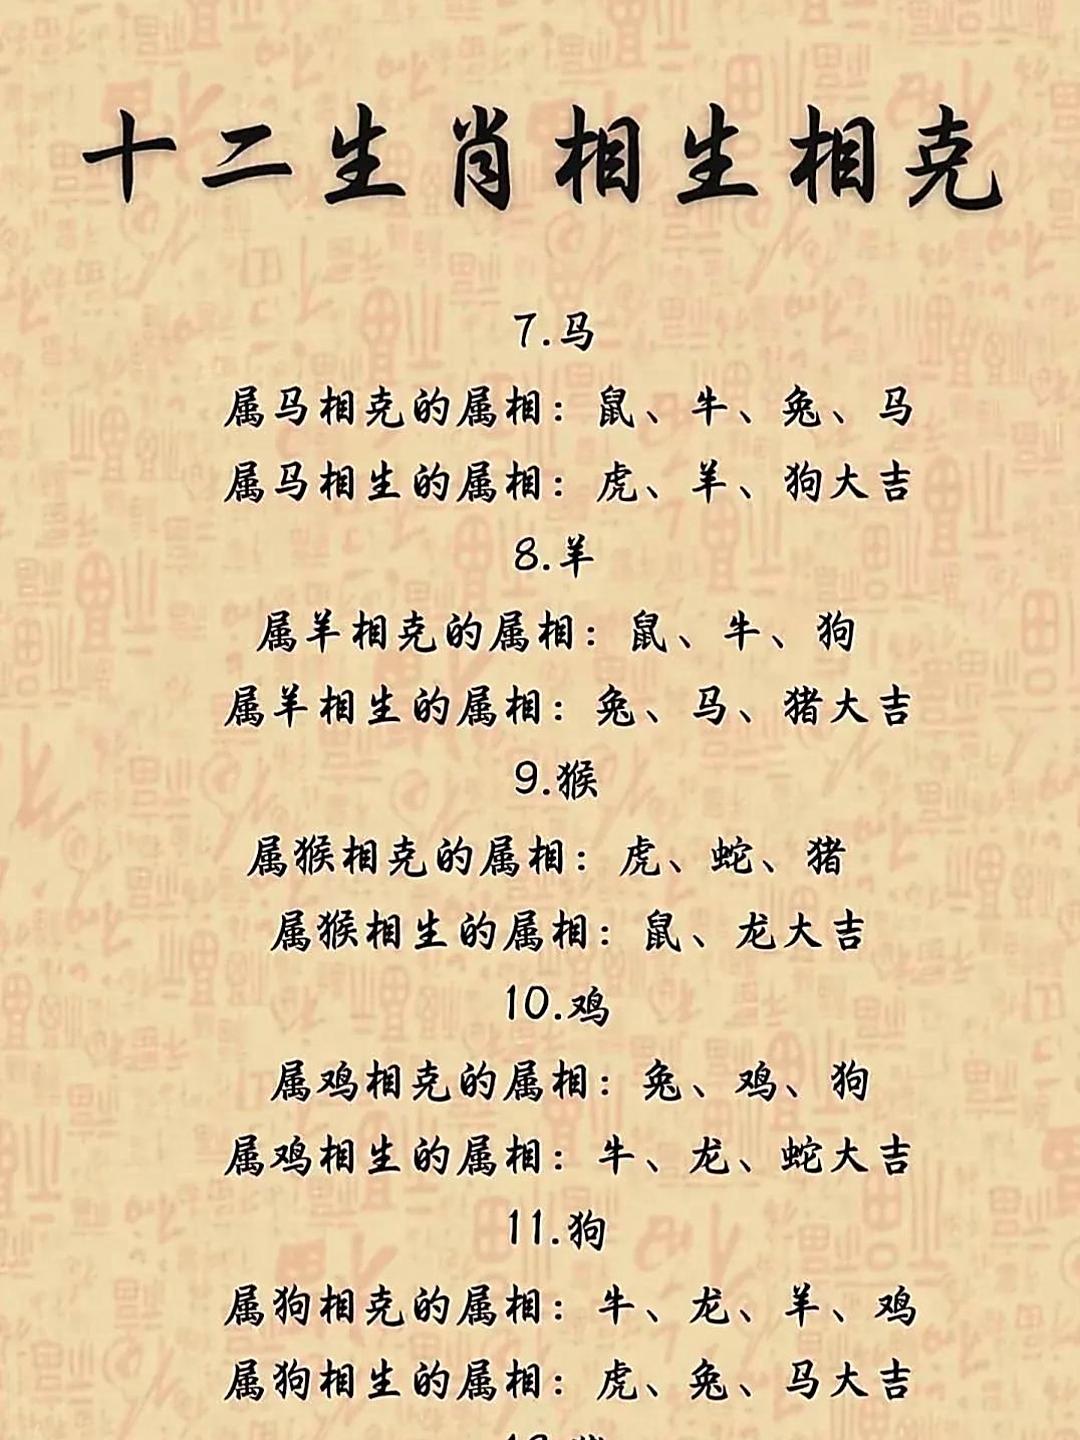 十二生肖相生相克
7.马
属马相克的属相：鼠、牛、兔、马
属马相生的属相：虎、羊、狗大吉
8.羊
属羊相克的属相：鼠、牛、狗
属羊相生的属相：兔、马、猪大吉
9.猴
属猴相克的属相：虎、蛇、猪
属猴相生的属相：鼠、龙大吉
10.鸡
属鸡相克的属相：兔、鸡、狗
属鸡相生的属相：牛、龙、蛇大吉
11.狗
属狗相克的属相：牛、龙、羊、鸡
属狗相生的属相：虎、兔、马大吉